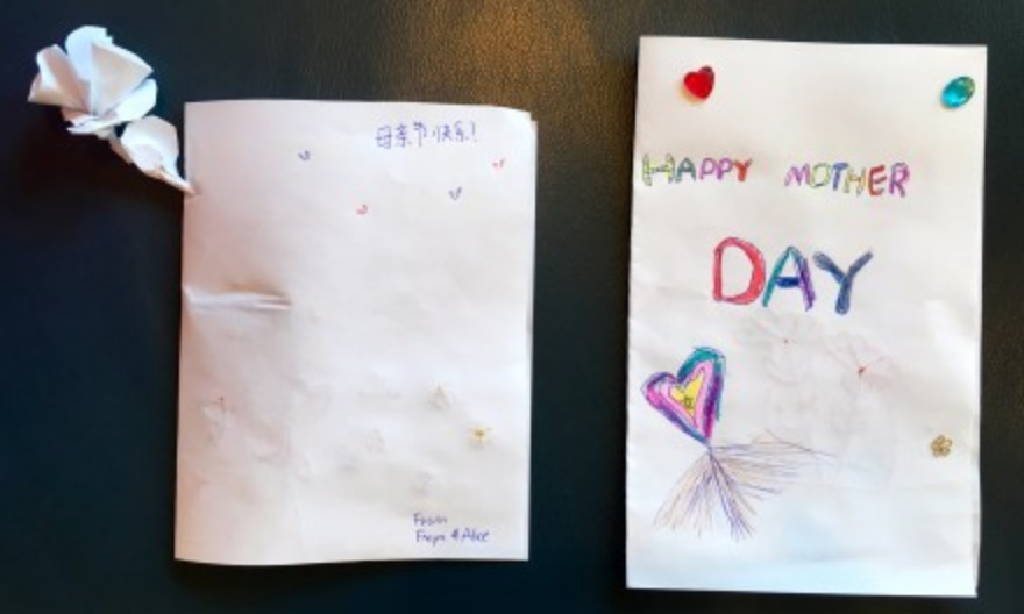 母亲节快乐!
From
From & Alice
HAPPY MOTHER
DAY